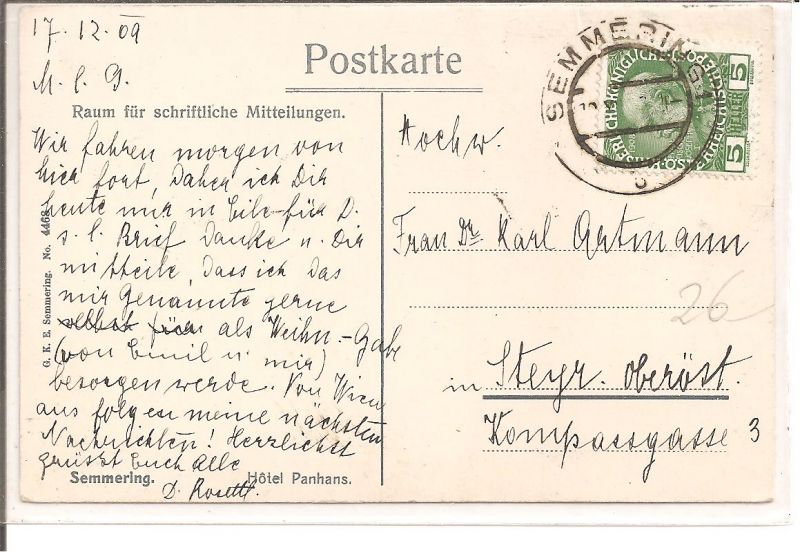 17.12.09
Postkarte
M. l. G.
Raum für schriftliche Mitteilungen.
Wir fahren morgen von
hier fort, daher ich Dir
heute nur in Eile für D.
s. l. Brief danke u. Dir
mitteile, dass ich das
mir Genannte gerne
selbst für als Weihn.-Gabe
(von Emil u. mir)
besorgen werde. Von Wien
aus folgen meine nächsten
Nachrichten! Herzlichst
grüsst Euch Alle
D. Rosette.
Semmering. Hôtel Panhans.
G. K. E. Semmering. No. 4468
SEMMERING
5 5
HELLER
1908
Hochw.
Frau Dr. Karl Artmann
26
in Steyr. Oberöst.
Kompassgasse 3